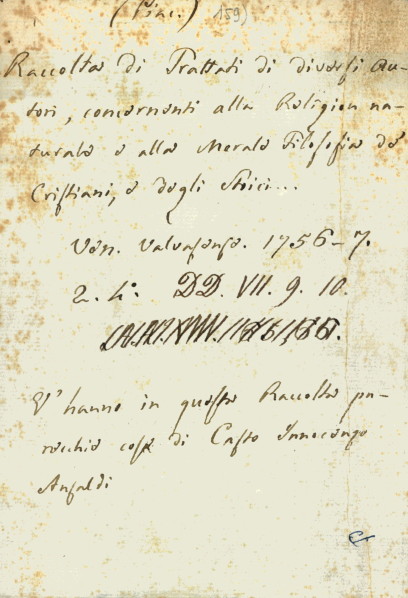 (Piac.) 159)
Raccolta di Trattati di diversi Au-
tori, concernenti alla Religion na-
turale e alla Morale Filosofia de'
Cristiani, e degli Stoici...
Ven. Valvasense. 1756-7.
2. 4°. DD. VII. 9. 10.
V' hanno in questa Raccolta pa-
recchie cose di Casto Innocenzo
Ansaldi